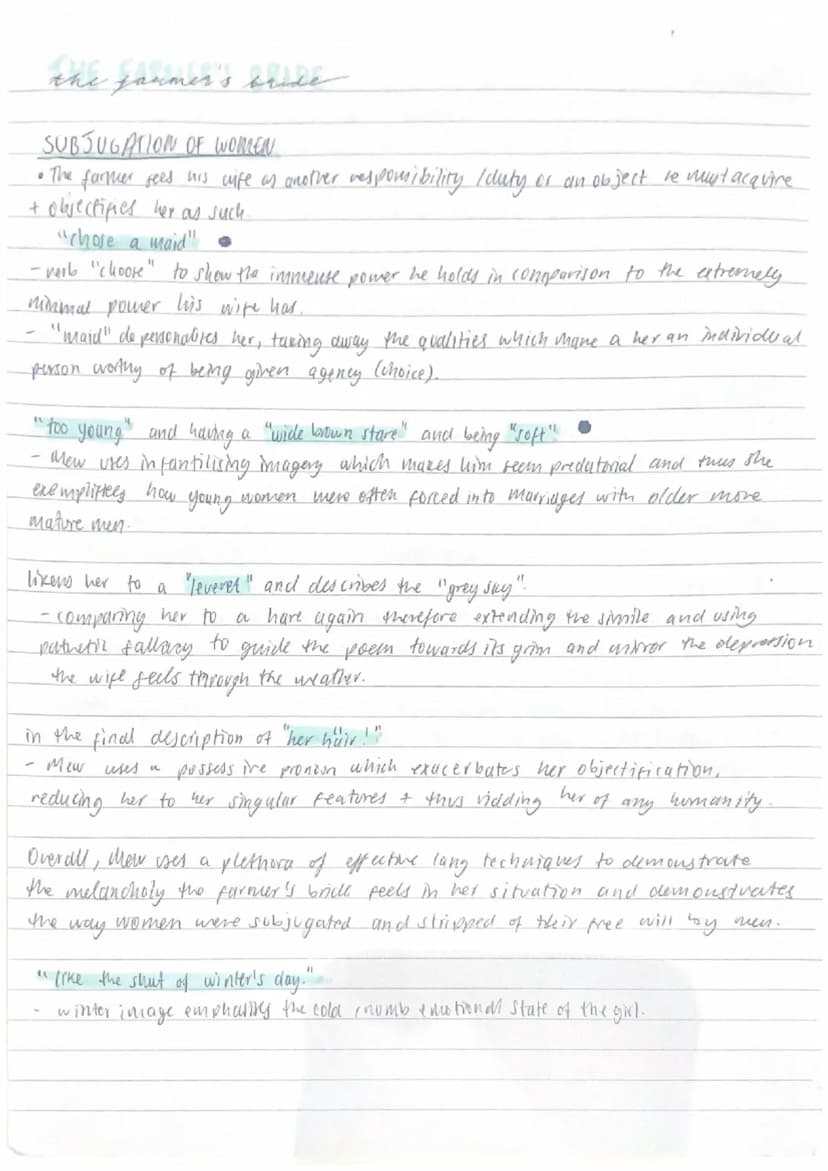 THE FARMER'S BRIDE
the farmer's bride
SUBJUGATION OF WOMEN
• The farmer sees his wife as another responsibility /duty or an object he must acquire
+ objectifies her as such
"chose a maid"
- verb "choose" to show the immense power he holds in comparison to the extremely
minimal power his wife has.
- "maid" depersonalises her, taking away the qualities which make a her an individual
person worthy of being given agency (choice).
"too young" and having a "wide brown stare" and being "soft".
- Mew uses infantilising imagery which makes him seem predatorial and thus she
exemplifies how young women were often forced into marriages with older more
mature men.
likens her to a "leveret" and describes the "grey sky".
- comparing her to a hare again therefore extending the simile and using
pathetic fallacy to guide the poem towards its grim and mirror the depression
the wife feels through the weather.
in the final description of "her hair!"
- Mew uses a possessive pronoun which exacerbates her objectification,
reducing her to her singular features + thus ridding her of any humanity.
Overall, Mew uses a plethora of effective lang techniques to demonstrate
the melancholy the farmer's bride feels in her situation and demonstrates
the way women were subjugated and stripped of their free will by men.
"like the shut of winter's day."
- winter image emphasises the cold / numb emotional state of the girl.